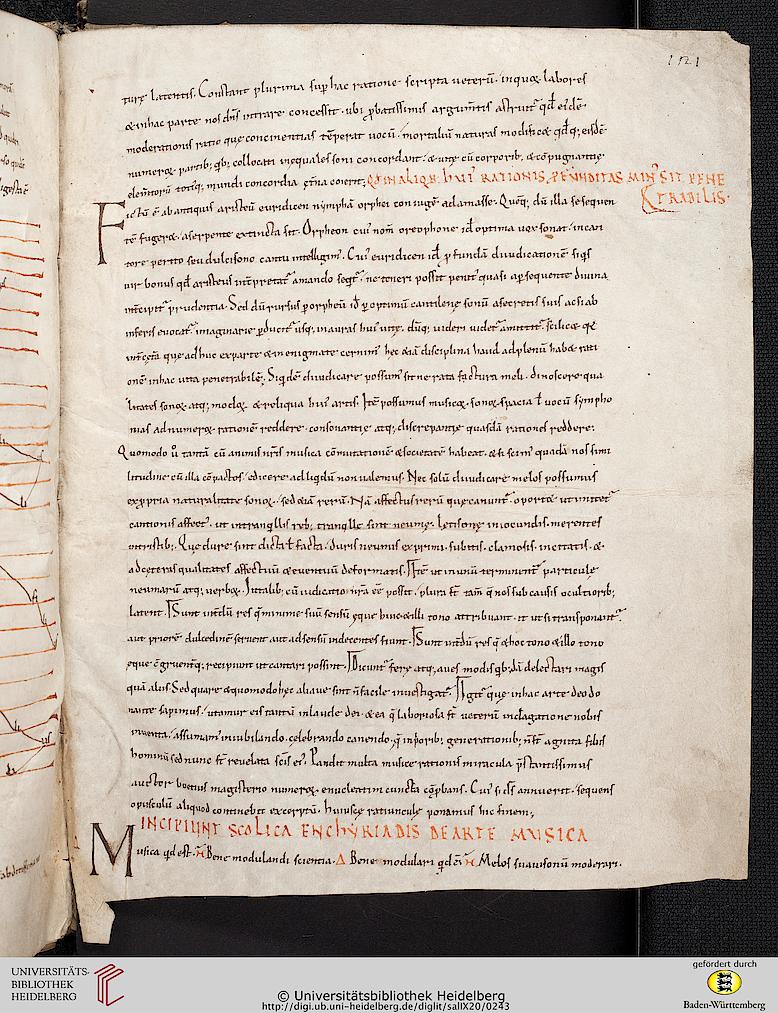 121
turę latentis. Constant plurima sup hac ratione scripta ueterū. inquoꝝ labores
& inhac parte nos dn̄s intrare concessit. ubi ꝓbatissimis argum̄tis astruit᷑ qđ eidē
moderationis ratio que concinentias tēperat uocū. mortaliū naturas modific& qđq; eisdē
numeroꝝ partib; qb; collocati inęquales soni concordant. & uitę cū corporib; & cōpugnantię
elem̄torū totiq; mundi concordia ęt̄na coierit. QD IN ALIQB; HUI' RATIONIS PFUNDITAS MIN' SIT PENE
TRABILIS.
Fictū ē ab antiquis aristeū euridicen nympha orphei coniugē adamasse. Quęq; dū illa se sequen
tē fuger& aserpente extincta sit. Orpheon cui' nom̄ oreophone id optima uox sonat. incan
tore perito seu dulcisono cantu intelligim'. Cui' euridicen id ꝓfundā diiudicationē siqs
uir bonus qđ aristeus int̄pretat᷑ amando seqt᷑. ne teneri possit penit' quasi aserpente diuina
int̄cipit᷑ prudentia. Sed dū rursus ꝑorpheū id ꝑoptimū cantilenę sonū asecretis suis ac si ab
inferis euocat᷑. imaginarie ꝑducit᷑ usq; in auras hui' uitę. dūq; uideri uidet᷑ amittit᷑. scilic& qę
int̄ cęt̄a que adhuc ex parte & in enigmate cernim' hęc &iā disciplina haud adplenū hab& rati
onē inhac uita penetrabilē. Siqdē diiudicare possum' sitne rata factura meli. dinoscere qua
litates sonoꝝ atq; modoꝝ & reliqua hui' artis. Itē possumus musicoꝝ sonoꝝ spacia ł uocū sympho
nias ad numeroꝝ rationē reddere. consonantię atq; discrepantię quasdā rationes reddere.
Quomodo ů tantā cū animis nr̄is musica cōmutationē & societatē habeat. & si scim' quadā nos simi
litudine cū illa cōpactos. edicere ad liqidū non ualemus. Nec solū diiudicare melos possumus
ex ꝓpria naturalitate sonoꝝ. sed &iā rerū. Nā affectus rerū que canunt᷑. oport& ut imitet᷑
cantionis affect'. ut in tranqllis reb; tranqllę sint neumę. lętisonę in iocundis. merentes
intristib; Que dure sint dicta ł facta. duris neumis exprimi. subitis. clamosis. incitatis. &
ad ceteras qualitates affectuū & euentuū deformatis. Itē ut in unū terminent᷑ particulę
neumarū atq; uerboꝝ. In talib; cū iudicatio nr̄a ēē possit. plura st̄ tam̄ q nos sub causis occultiorib;
latent. Sunt int̄dū res q minime suū sensū ęque huic & illi tono attribuant. it ut si transponant᷑.
aut priorē dulcedinē seruent aut adsensū indecentes fiunt. Sunt int̄dū res q & hoc tono & illo tono
ęque ōgruent q; recipiunt ut cantari possint. Dicunt᷑ ferę atq; aues modis qb;dā delectari magis
quā aliis. Sed quare & quomodo hęc aliaue sint n̄ facile inuestigat᷑. Igit᷑ que inhac arte deo do
nante sapimus. utamur eis tantū inlaude dei. & ea q laboriosa st̄ ueterū indagatione nobis
inuenta. assumam' iniubilando. celebrando canendo. q in porib; generationib; n̄ st̄ agnita filiis
hominū sed nunc st̄ reuelata sc̄is ei'. Pandit multa musicę rationis miracula pstantissimus
auctor boetius magisterio numeroꝝ enucleatim cuncta cōpbans. Cui' si dˢ annuerit. sequens
opusculū aliquod continebit excerptū. Huiusce ratiunculę ponamus hic finem;
INCIPIUNT SCOLICA ENCHYRIADIS DE ARTE MUSICA
Musica qđ est. M Bene modulandi scientia. Δ Bene modulari qđ ē. M Melos suauisonū moderari.
UNIVERSITÄTS-
BIBLIOTHEK
HEIDELBERG
© Universitätsbibliothek Heidelberg
http://digi.ub.uni-heidelberg.de/diglit/salIX20/0243
gefördert durch
Baden-Württemberg